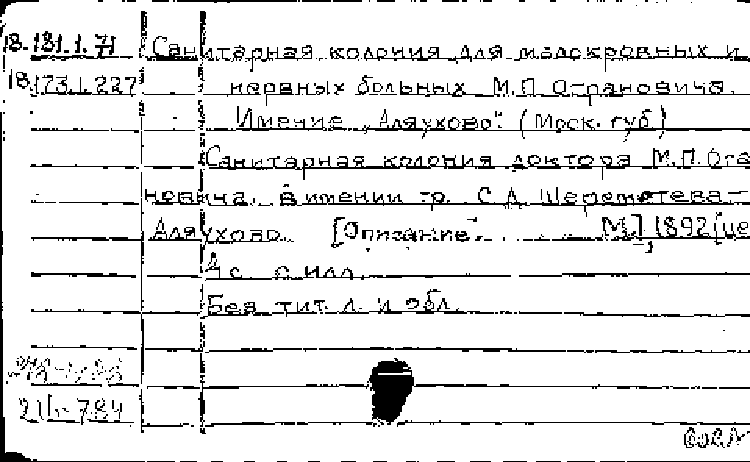 18.181.1.71 Санитарная колония для малокровных и
18.173.1.227 нервных больных М.П. Ограновича.
Имение „Аляухово". (Моск. губ.)
Санитарная колония доктора М.П. Огра
новича. В имении гр. С.Д. Шереметева –
Аляухово. [Описание]. М., 1892 [це
4 с. с илл.
Без тит. л. и обл.
21/-784